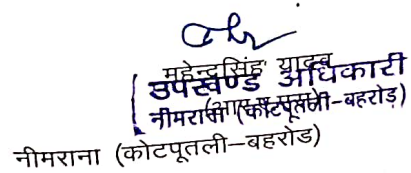 महेन्द्रसिंह यादव
उपखण्ड अधिकारी
नीमराना (कोटपूतली-बहरोड़)
नीमराना (कोटपूतली-बहरोड)